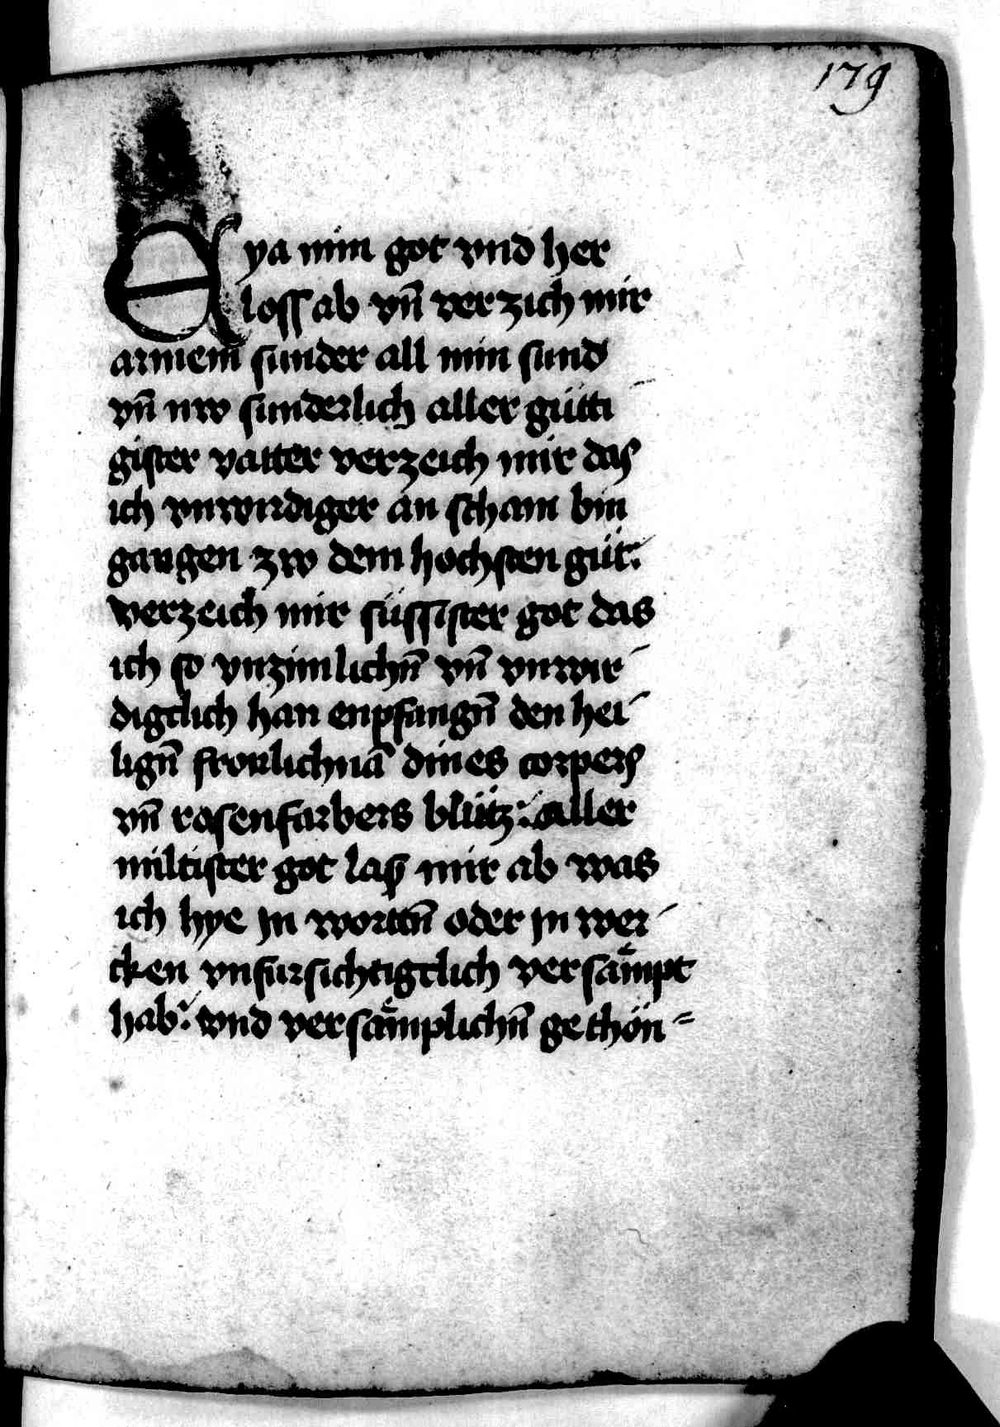 179
Eya min got vnd her
loss ab vn̄ verzich mir
armem sunder all min sund
vn̄ nw sunderlich aller gütti
gister vatter verzeich mir das
ich vnwirdiger an scham bin
gangen zw dem hochsten güt:
verzeich mir süssister got das
ich so vnzimlichn̄ vn̄ vnwir-
digclich han enpfangn̄ den hei-
lign̄ fronlichnā dines corpers
vn̄ rosenfarbers blütz: aller
miltister got las mir ab was
ich hye jn worttn̄ oder jn wer-
cken vnfursichtigclich versämpt
hab: vnd versämplichn̄ gethön=